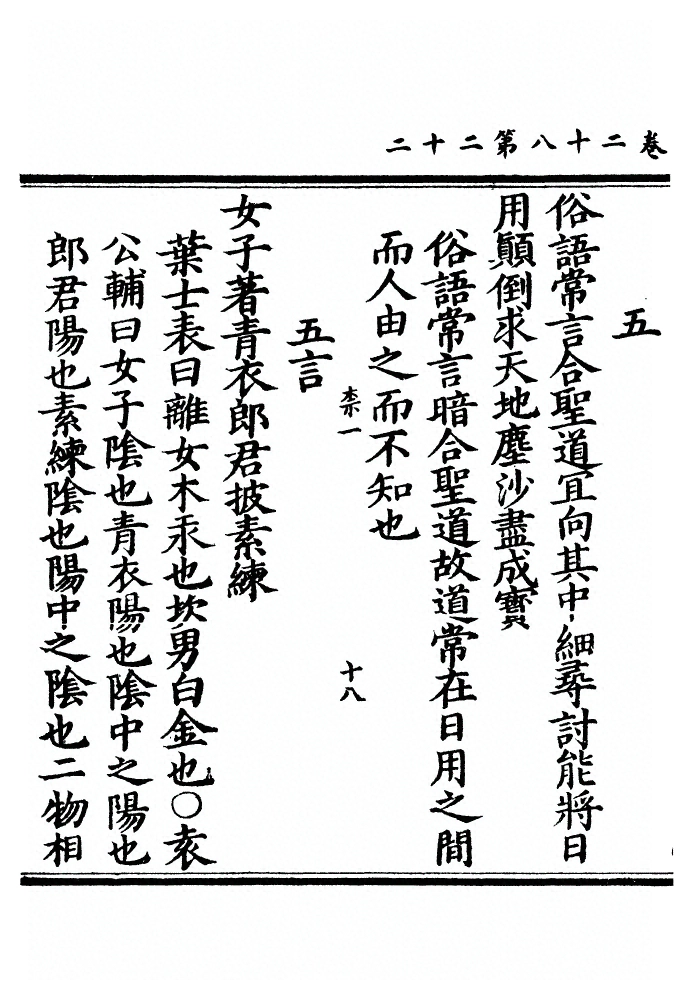 卷二十八第二十二
五
俗語常言合聖道冝向其中細尋討能將日
用顛倒求天地塵沙盡成寳
俗語常言暗合聖道故道常在日用之間
而人由之而不知也
柰一　十八
五言
女子著青衣郎君披素練
葉士表曰離女木汞也坎男白金也○袁
公輔曰女子陰也青衣陽也陰中之陽也
郎君陽也素練陰也陽中之陰也二物相